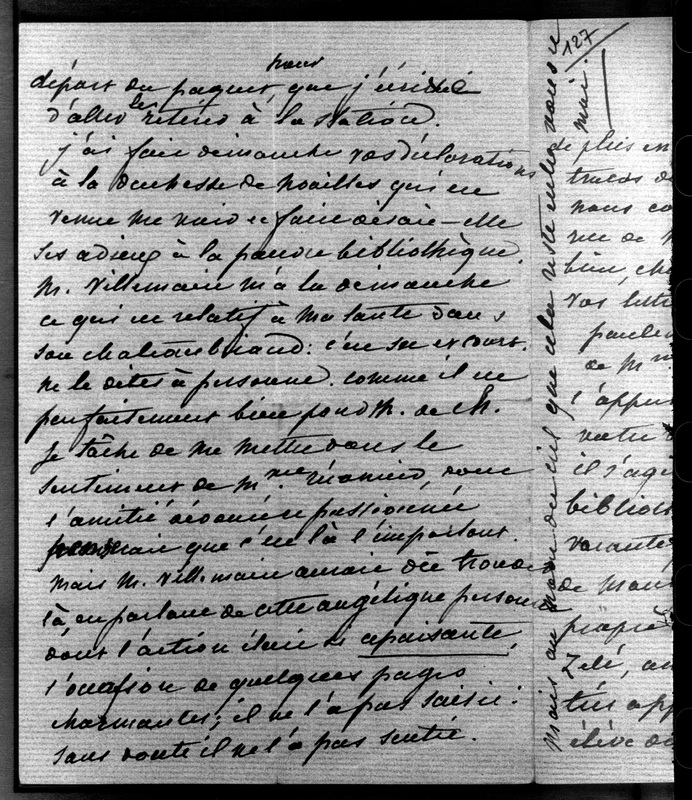 nous
départ du paquet que j'évitai
d'aller le retirer à la station.
j'ai fait dimanche vos déclarations
à la duchesse de Noailles qui est
venue me voir et faire disait-elle
ses adieux à la pauvre bibliothèque.
M. Villemain m'a lu dimanche
ce qui est relatif à ma tante dans
son chateaubriand: c'est sec et court.
ne le dites à personne. comme il est
parfaitement bien pour M. de Ch.
je tâche de me mettre dans le
sentiment de Mme Récamier, dont
l'amitié dévouée passionnée
penserait que c'est là l'important.
mais M. Villemain aurait dû trouver
là en parlant de cette angélique personne
dont l'action était si apaisante,
l'occasion de quelques pages
charmantes; il ne l'a pas saisie:
sans doute il ne l'a pas sentie.
Mais au nom du ciel que cela reste entre vous et
moi.
127
de plus en
tracas de
nous co
rue de
bien, ch
vos lett
de Mr.
l'appu
votre
il s'agi
biblioth
vacante
de Mon
propre
Zélé, au
très app
élève de